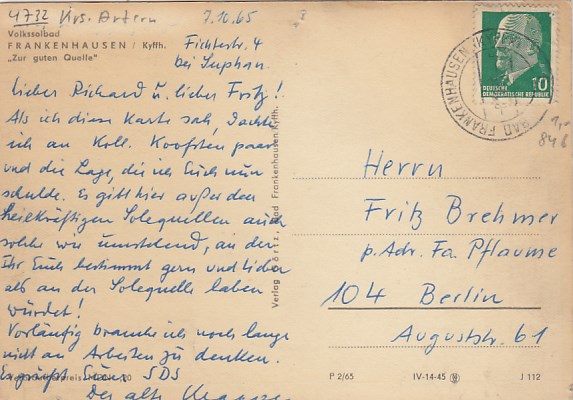 4732 Krs. Artern 7.10.65
Volkssolbad
FRANKENHAUSEN / Kyffh.
„Zur guten Quelle"
Fichtestr. 4
bei
Lieber Richard u. lieber Fritz!
Als ich diese Karte sah, dachte
ich an Koll.
und die Lage, die ich Euch nun
schulde. Es gibt hier außer den
heilkräftigen Solequellen auch
solche wie umstehend, an der
Ihr Euch bestimmt gern und lieber
als an der Solequelle laben
würdet!
Vorläufig brauche ich noch lange
nicht an Arbeiten zu denken.
Es grüßt
Der alte
Bad Frankenhausen/Kyffh.
DEUTSCHE
DEMOKRATISCHE REPUBLIK
10
BAD FRANKENHAUSEN (KYFFH)
1,-
Herrn
Fritz Brehmer
p. Adr. Fa. Pflaume
104 Berlin
Auguststr. 61
P 2/65 IV-14-45 J 112